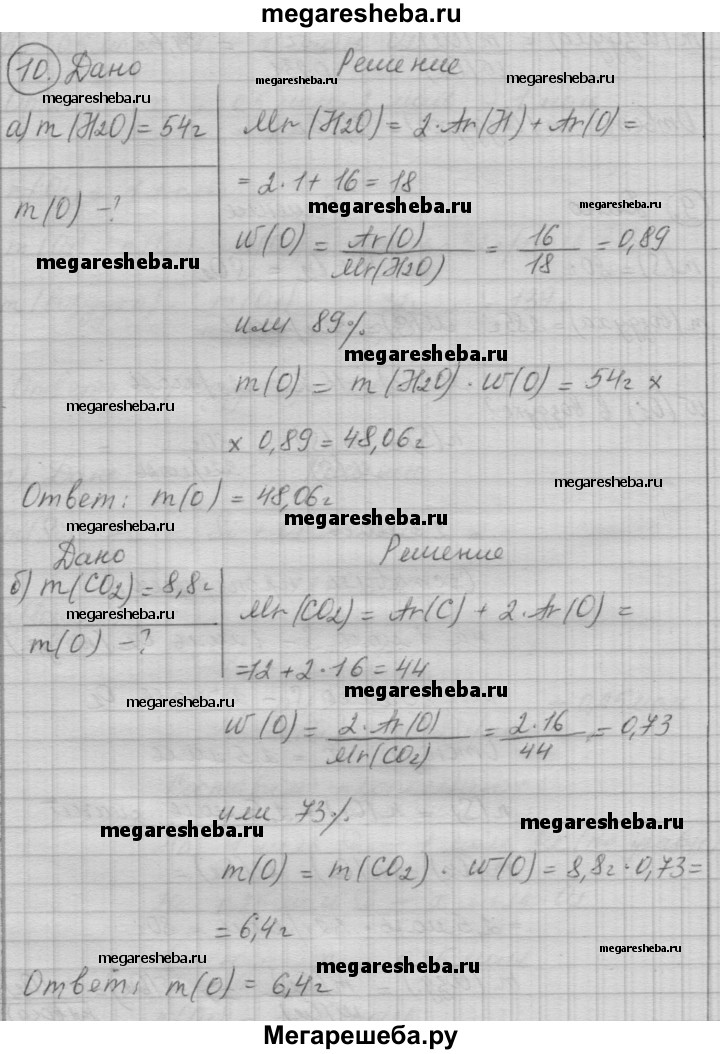 megaresheba.ru
10. Дано Решение
megaresheba.ru megaresheba.ru megaresheba.ru
а) m(H2O) = 54г Mr(H2O) = 2·Ar(H) + Ar(O) =
= 2·1 + 16 = 18
m(O) -? megaresheba.ru
W(O) = Ar(O) / Mr(H2O) = 16 / 18 = 0,89
megaresheba.ru
или 89%
megaresheba.ru
m(O) = m(H2O)·W(O) = 54г x
megaresheba.ru
x 0,89 = 48,06г
megaresheba.ru
Ответ: m(O) = 48,06г
megaresheba.ru megaresheba.ru
Дано Решение
б) m(CO2) = 8,8г
megaresheba.ru Mr(CO2) = Ar(C) + 2·Ar(O) =
m(O) -?
=12 + 2·16 = 44
megaresheba.ru megaresheba.ru
W(O) = 2·Ar(O) / Mr(CO2) = 2·16 / 44 = 0,73
или 73%
megaresheba.ru megaresheba.ru
m(O) = m(CO2) · W(O) = 8,8г·0,73=
= 6,4г
megaresheba.ru megaresheba.ru megaresheba.ru
Ответ: m(O) = 6,4г
Мегарешеба.ру